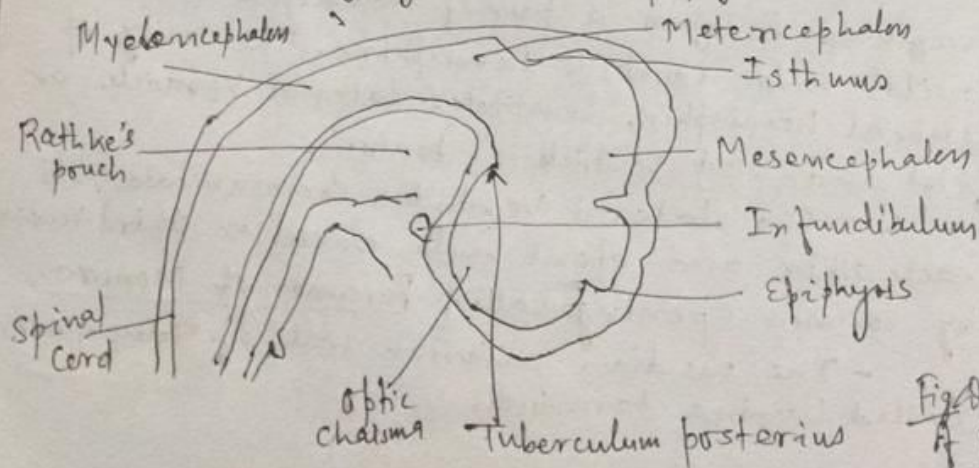 Myelencephalon
Metencephalon
Isthmus
Rathke's
pouch
Mesencephalon
Infundibulum
Epiphysis
Spinal
Cord
Optic
Chaisma
Tuberculum posterius
Fig
A